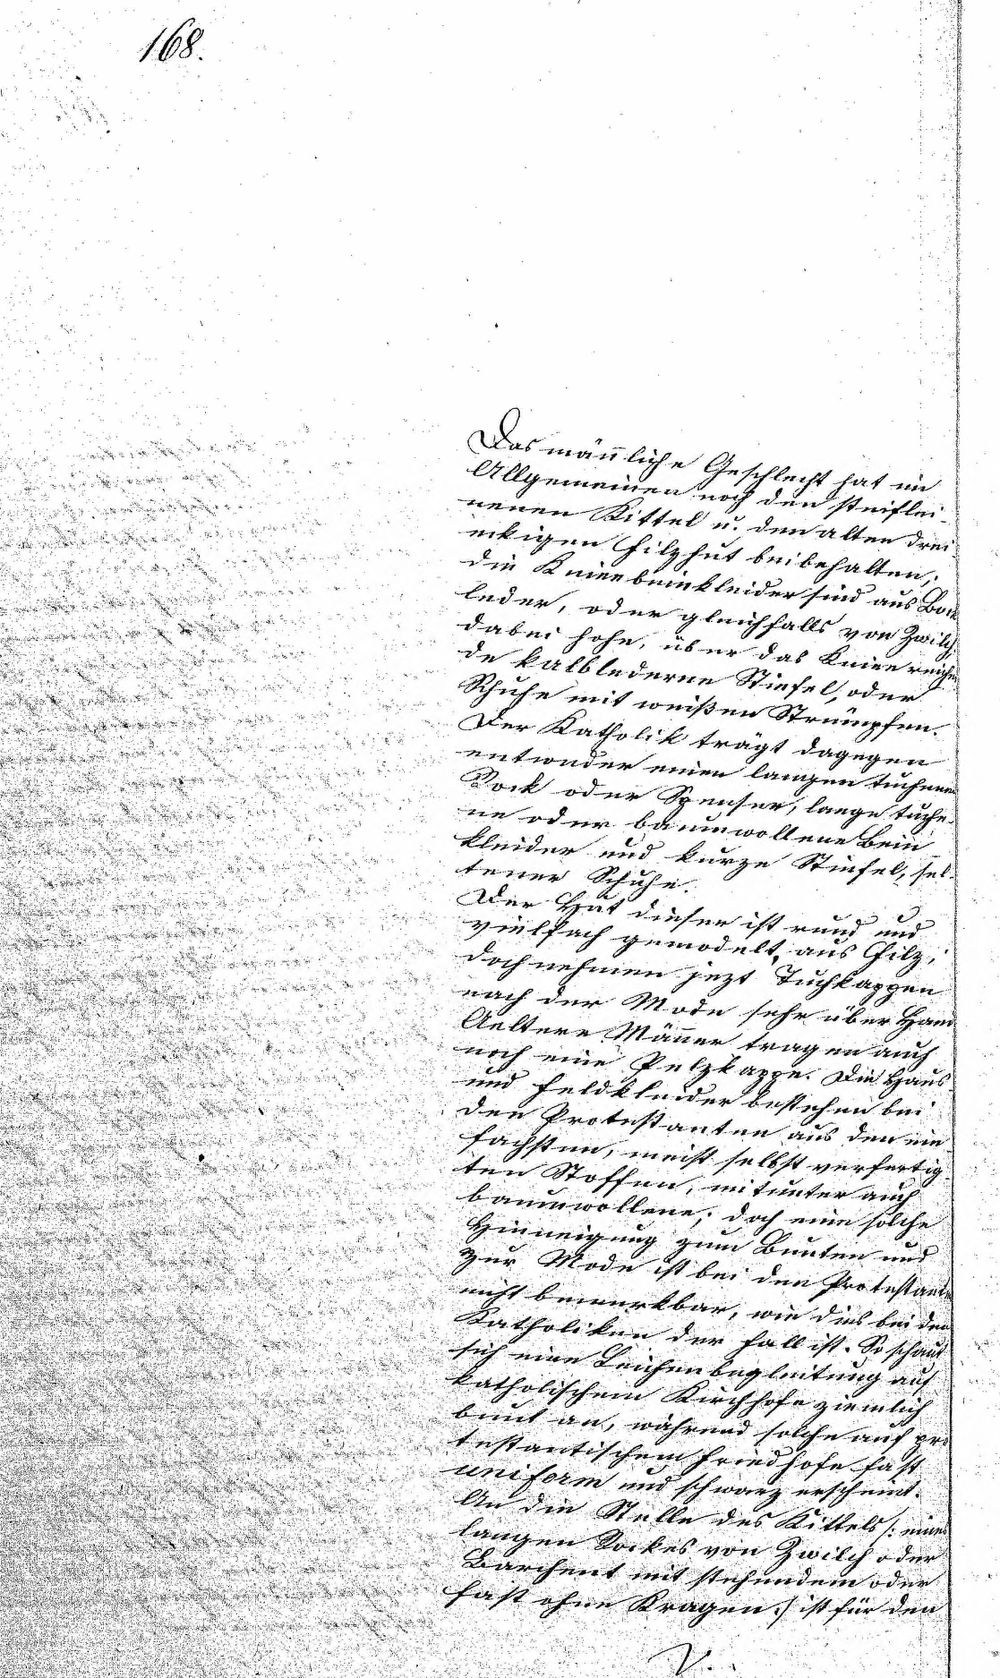 168.
Das männliche Geschlecht hat im
Allgemeinen noch den steiflei-
nenen Kittel u. den alten drei-
eckigen Filzhut beibehalten;
die Kniebeinkleider sind aus Bock
leder, oder gleichfalls von Zwilch,
dabei hohe, über das Knie reichen
de kalblederne Stiefel, oder
Schuhe mit weißen Strümpfen.
Der Katholik trägt dagegen
entweder einen langen tuchenen
Rock oder Spenser, lange tuche-
ne oder baumwollene Bein
kleider und kurze Stiefel, sel-
tener Schuhe.
Der Hut dieser ist rund und
vielfach gemodelt, aus Filz;
doch nehmen jezt Tuchkappen
nach der Mode sehr über Hand
Aeltere Männer tragen auch
noch eine Pelzkappe. Die Haus
und Feldkleider bestehen bei
den Protestanten aus den ein
fachsten, meist selbst verfertig
ten Stoffen, mitunter auch
baumwollene; doch eine solche
Hinneigung zum Bunten und
zur Mode ist bei den Protestanten
nicht bemerkbar, wie dies bei den
Katholiken der Fall ist. So schaut
sich eine Leichenbegleitung auf
katholischem Kirchhofe ziemlich
bunt an, während solche auf pro
testantischem Friedhofe fast
uniform und schwarz erscheint.
An die Stelle des Kittels /: eines
langen Rockes von Zwilch oder
Barchent mit stehendem oder
fast ohne Kragen :/ ist für den